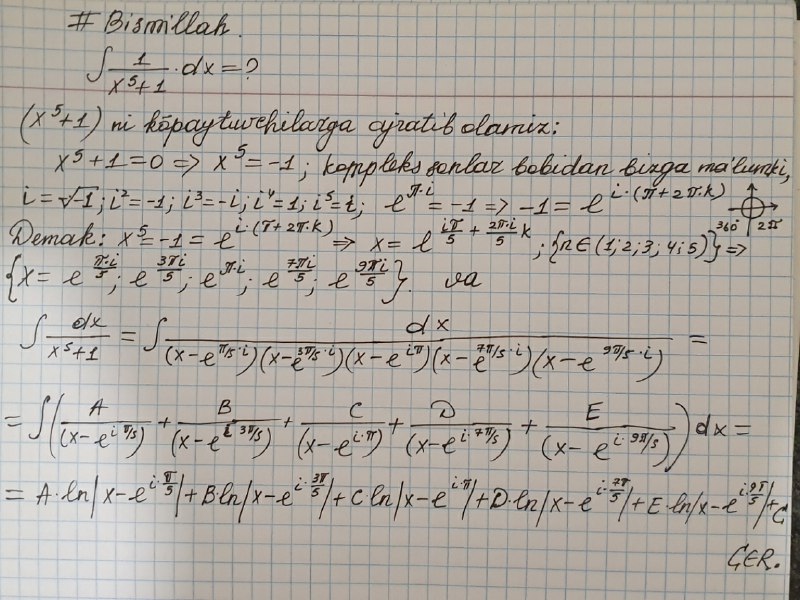 # Bismillah.
∫ 1/(x⁵+1) · dx = ?
(x⁵+1) ni ko'paytuvchilarga ajratib olamiz:
x⁵+1=0 => x⁵=-1; kompleks sonlar bobidan bizga ma'lumki,
i=√-1; i²=-1; i³=-i; i⁴=1; i⁵=i; e^(π·i)=-1 => -1=e^(i·(π+2π·k))
360° 2π
Demak: x⁵=-1=e^(i·(π+2π·k)) => x=e^(iπ/5+2π·i/5 k); {n∈(1;2;3;4;5)} =>
{x= e^(π·i/5); e^(3πi/5); e^(π·i); e^(7πi/5); e^(9πi/5)}. va
∫ dx/(x⁵+1) = ∫ dx/((x-e^(π/5·i))(x-e^(3π/5·i))(x-e^(iπ))(x-e^(7π/5·i))(x-e^(9π/5·i))) =
= ∫( A/(x-e^(i·π/5)) + B/(x-e^(i·3π/5)) + C/(x-e^(i·π)) + D/(x-e^(i·7π/5)) + E/(x-e^(i·9π/5)) ) dx =
= A·ln|x-e^(i·π/5)| + B·ln|x-e^(i·3π/5)| + C ln|x-e^(i·π)| + D·ln|x-e^(i·7π/5)| + E·ln|x-e^(i·9π/5)| + C₁
ÇER.